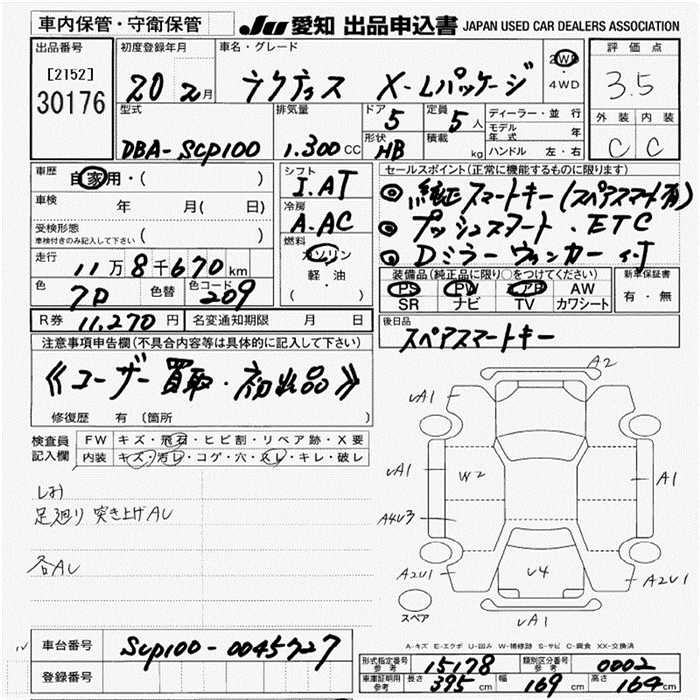 車内保管・守衛保管
JU 愛知 出品申込書 JAPAN USED CAR DEALERS ASSOCIATION
出品番号
[2152]
30176
初度登録年月
20 2月
車名・グレード
ラクティス X-Lパッケージ
2WD
・
4WD
評価点
3.5
外装 内装
C C
型式
DBA-SCP100
排気量
1.300CC
ドア
5
形状
HB
定員
5人
積載
kg
ディーラー・並行
モデル年式 年
ハンドル 左・右
車歴 自家用・( )
車検 年 月( 日)
受検形態
車検付きのみ記入して下さい ( )
走行 11万8千670km
色 7P 色替 色コード 209
シフト
I.AT
冷房
A.AC
燃料
ガソリン
軽・油
( )
セールスポイント(正常に機能するものに限ります)
◎ 純正スマートキー(スペアスマート有)
◎ プッシュスタート.ETC
◎ Dミラーウィンカー付
装備品(純正品に限り○をつけてください)
PS PW エアB AW
SR ナビ TV カワシート
新車保証書
有・無
R券 11,270円 名変通知期限 月 日
後日品
スペアスマートキー
注意事項申告欄(不具合内容等は具体的に記入して下さい)
《ユーザー買取・初出品》
修復歴 有 〔箇所
検査員記入欄
FW キズ・飛石・ヒビ割・リペア跡・X要
内装 キズ・汚レ・コゲ・穴・スレ・キレ・破レ
足廻り 突き上げAU
各AU
A2
UA1
UA1
W2
A1
A4U3
A2U1
U4
A2U1
UA1
スペア
A-キズ E-エクボ U-凹み W-補修跡 S-サビ C-腐食 XX-交換済
車台番号 SCP100-0045727
登録番号
形式指定番号 参考 15178 類別区分番号 参考 0002
車庫証明用 参考 長さ 395cm 幅 169cm 高さ 164cm